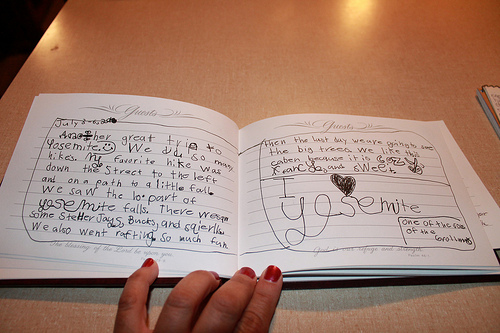 Guests
July
great trip to
Yosemite. We did so many
hikes. My favorite hike was
down the street to the left
and on a path to a little fall.
We saw the lo part of
yosemite falls. There were
some Steller Jays, Bucks and
We also went rafting so much fun
Guests
Then the last day we are going to see
the big trees. we like this
because it is cozy
and sweet
I
yosemite
one of the
of the